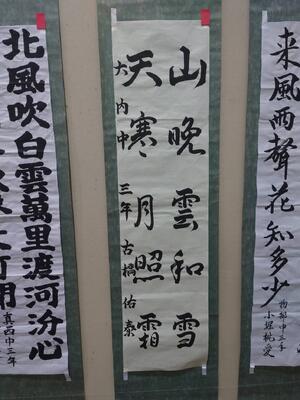 来風雨聲花知多少
物部中三年
山晩雲和雪
天寒月照霜
大内中 三年 古橋佑
北風吹白雲萬里渡河汾心
真西中三年